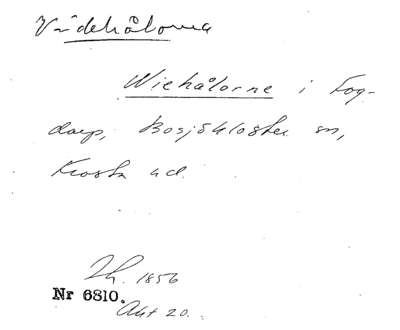 Videhålorna
Wiehålorne i Fog-
darp, Bosjökloster sn,
Frosta hd.
Lh. 1856
Nr 6810.
Akt 20.